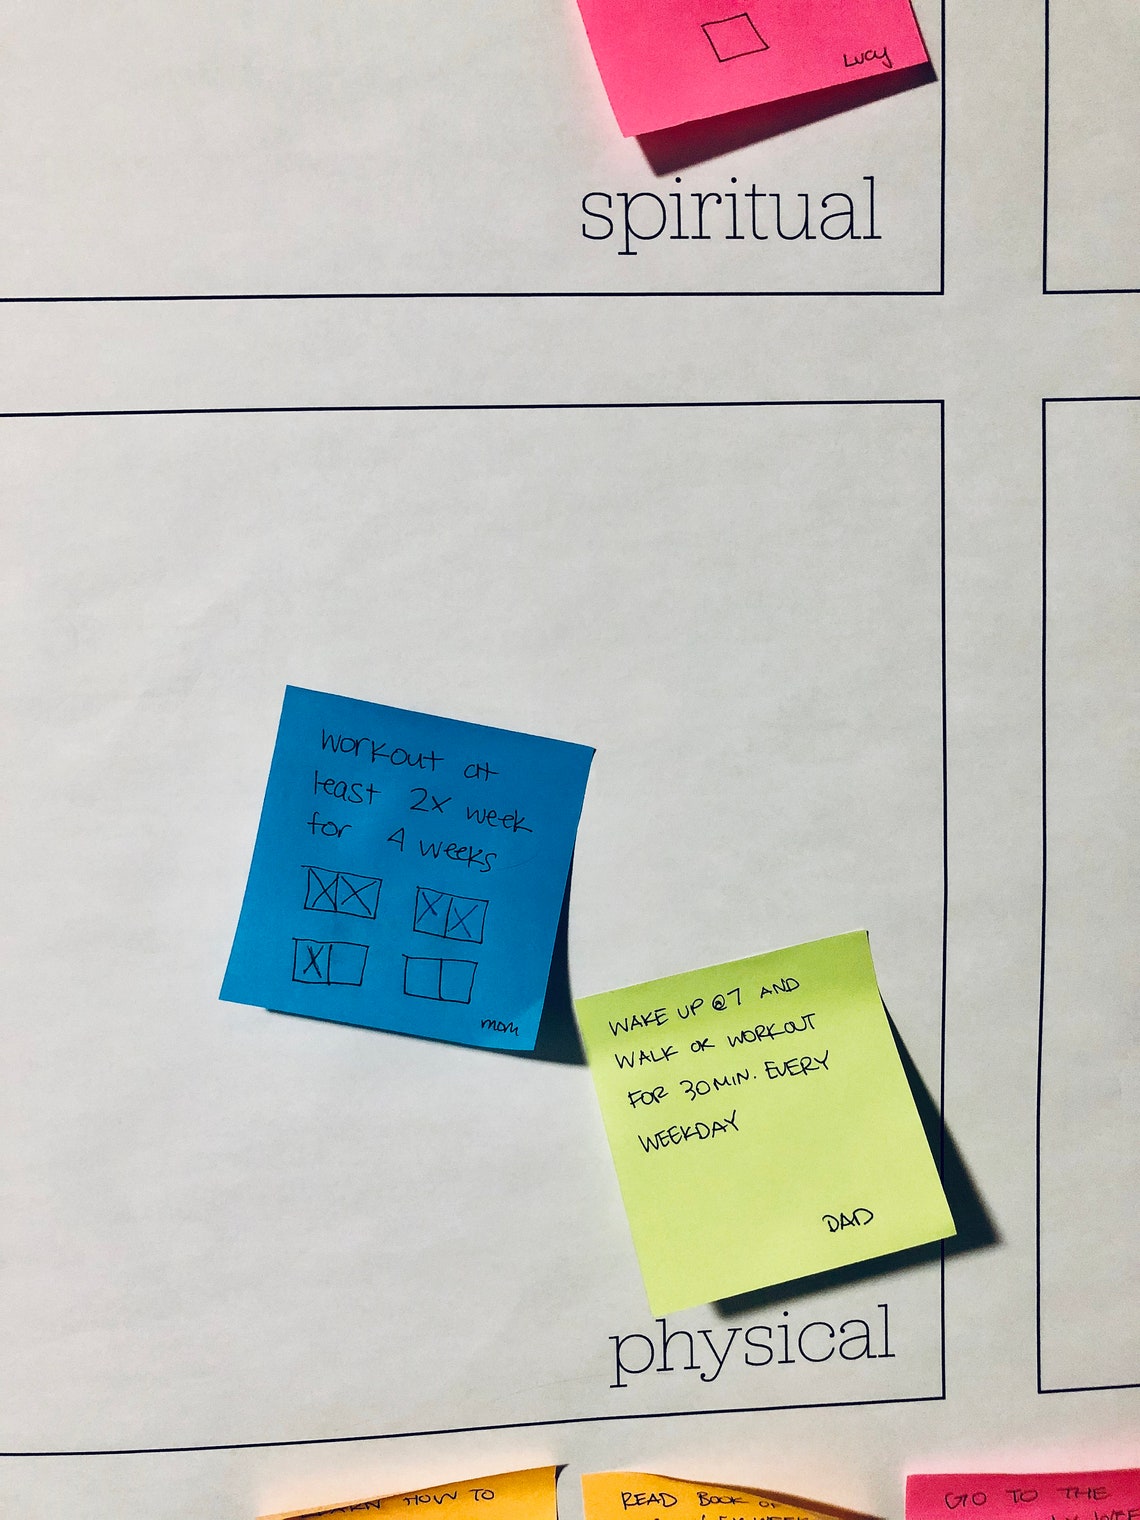 Lucy
spiritual
workout at
least 2x week
for 4 weeks
mom
WAKE UP @7 AND
WALK OR WORKOUT
FOR 30 MIN. EVERY
WEEKDAY
DAD
physical
HOW TO
READ BOOK OF
WEEK
GO TO THE